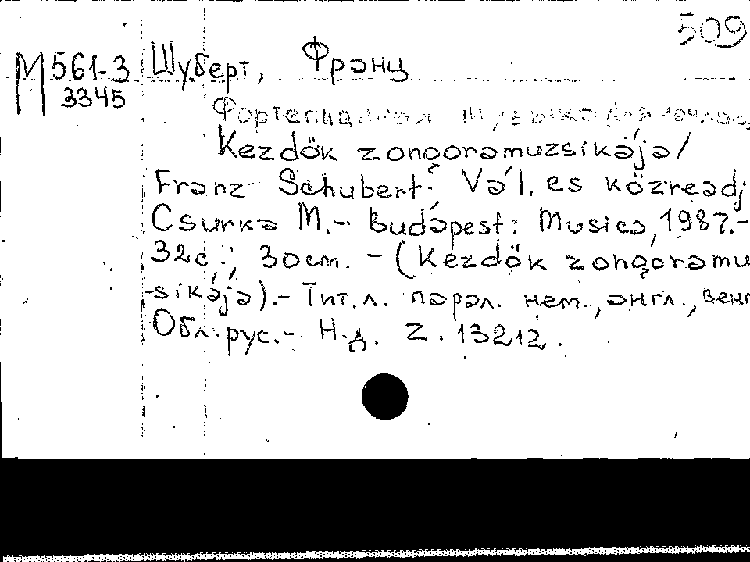 509
М 561-3
3345
Шуберт, Франц
Фортепианная музыка для
Kezdök zongoramuzsikája /
Franz Schubert; Vál. es közread,
Csurka M.- Budapest: Musica, 1987.-
32с.; 30см. - (Kezdök zongoramu
-sikája).- Тит.л. парал. нем., англ., венг
Обл. рус.- Н.д. Z. 13212.